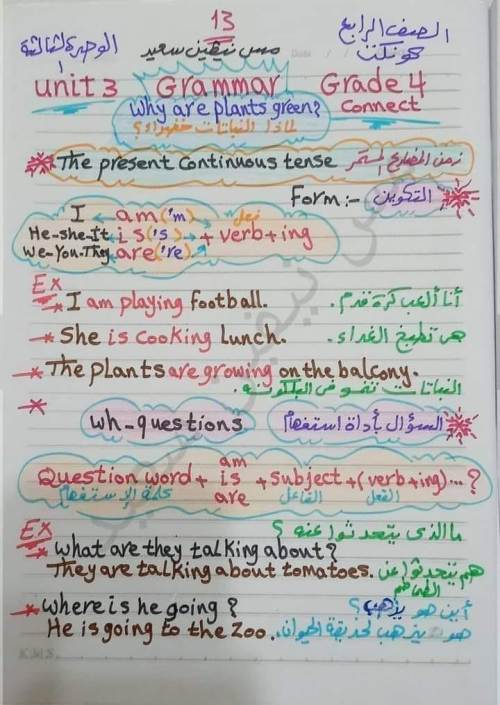 13
الوحدة الثالثة مس نيفين سعيد الصف الرابع
كونكت
unit 3 Grammar Grade 4
Connect
Why are plants green?
لماذا النباتات خضراء؟
The present continuous tense زمن المضارع المستمر
Form:- التكوين
I am ('m) فعل
He-she-It is ('s) + verb + ing
We-You-They are ('re)
Ex
I am playing football. أنا ألعب كرة قدم.
She is cooking Lunch. هى تطبخ الغداء.
The plants are growing on the balcony.
النباتات تنمو فى البلكونه.
wh-questions السؤال بأداة استفهام
am
Question word + is + subject + (verb+ing)...?
are
كلمة الإستفهام الفاعل الفعل
Ex ما الذى يتحدثوا عنه؟
what are they talking about?
They are talking about tomatoes. هم يتحدثوا عن
الطماطم
where is he going? أين هو يذهب؟
He is going to the zoo. هو يذهب لحديقة الحيوان.